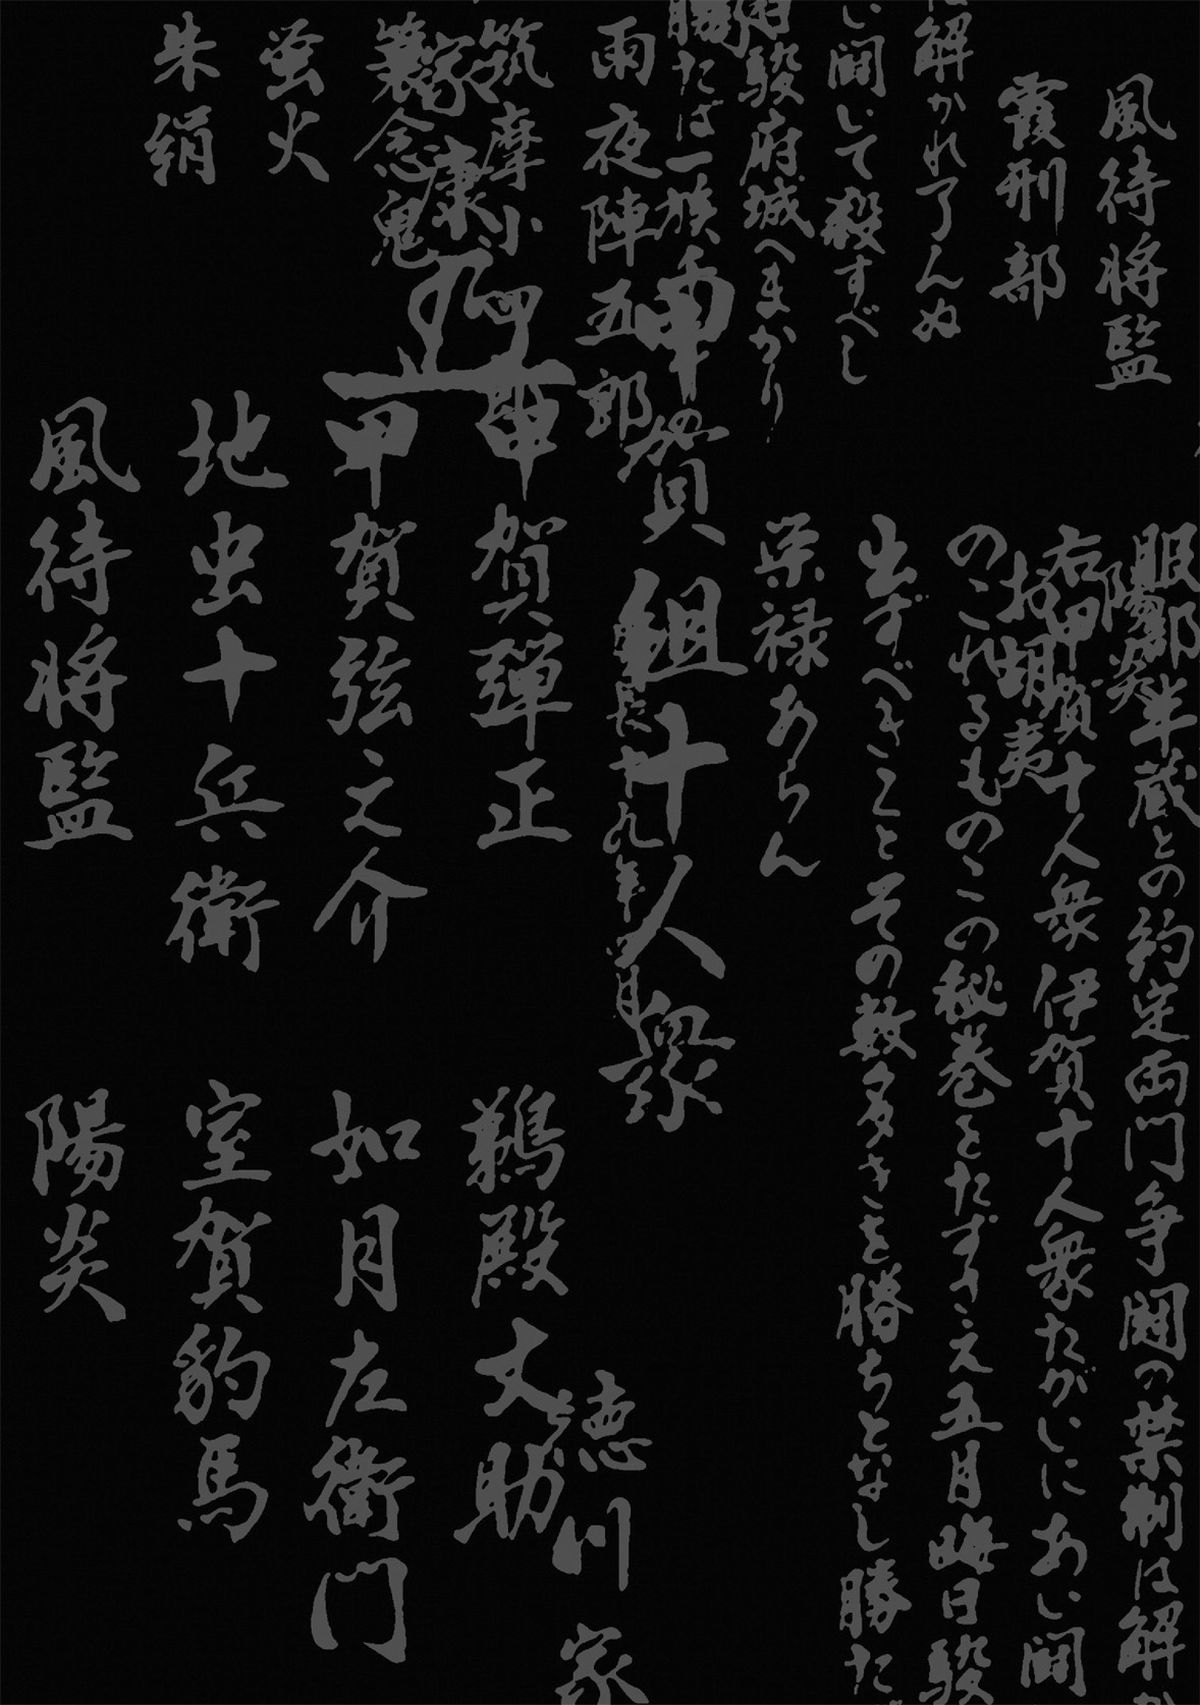 風待将監
霞刑部
解かれ了んぬ
い闘いて殺すべし
日駿府城へまかり
勝たば一族
雨夜陣五郎
筑摩小四郎
家康
簑念鬼
蛍火
朱絹
服部半蔵との約定両門争闘の禁制は解か
陽炎
右甲賀十人衆伊賀十人衆たがいにあい闘
お胡夷
のこれるものこの秘巻をたずさえ五月晦日駿
出ずべきことその数多きを勝ちとなし勝た
栄禄あらん
甲賀組十人衆
慶長十九年四月
甲賀弾正
甲賀弦之介
地虫十兵衛
風待将監
徳川家
鵜殿丈助
如月左衛門
室賀豹馬
陽炎